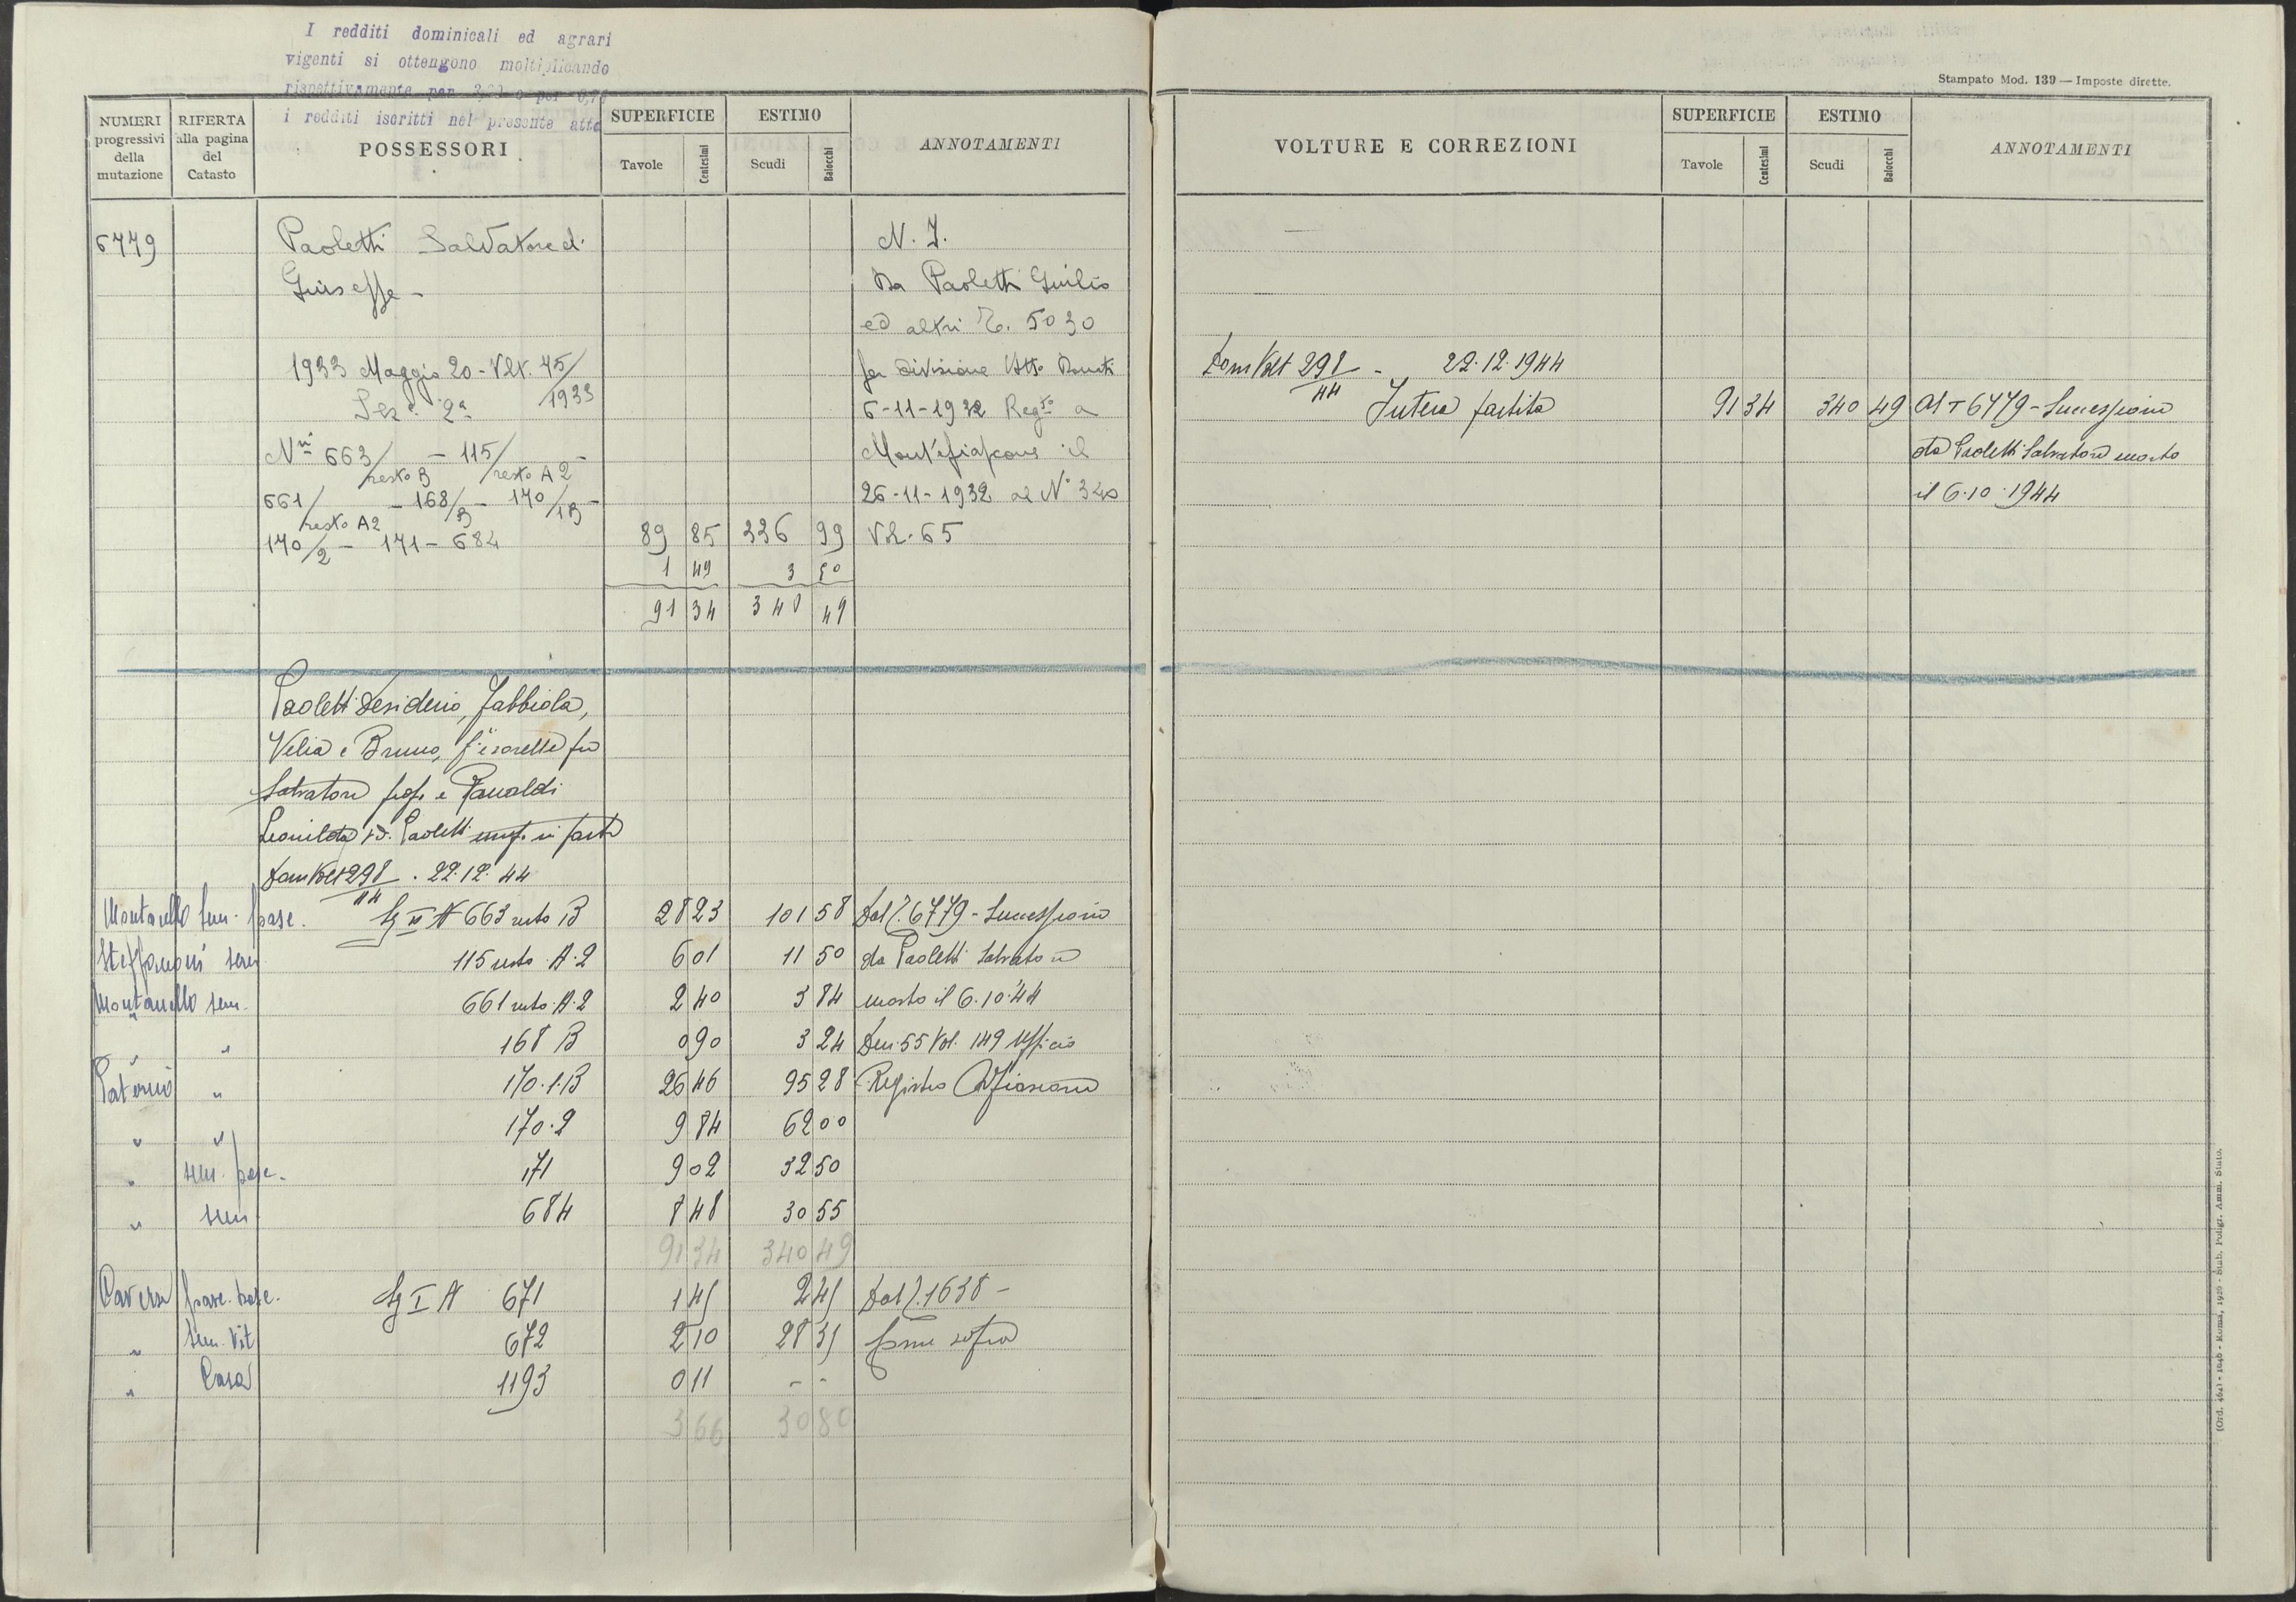 I redditi dominicali ed agrari
vigenti si ottengono moltiplicando
rispettivamente per
i redditi iscritti nel presente atto
NUMERI progressivi della mutazione
RIFERTA alla pagina del Catasto
POSSESSORI
SUPERFICIE
Tavole
Centesimi
ESTIMO
Scudi
Baiocchi
ANNOTAMENTI
6779
Paoletti Salvatore di
Giuseppe -
1933 Maggio 20 - Vlt. 75/1933
Sez. 2ª
Nri 663/resto B - 115/resto A2 -
661/resto A2 - 168/B - 170/1B -
170/2 - 171 - 684
89 85 336 99
1 49 3 50
91 34 340 49
N. I.
Da Paoletti Giulio
ed altri P. 5030
per divisione Atto
6-11-1932 Regto a
Montefiascone il
26-11-1932 al N° 340
Vol. 65
Paoletti Desiderio, Fabbiola,
Velia e Bruno, f.lli e sorelle fu
Salvatore prop. e
Leonilda vd. Paoletti usuf. in parte
Dom Volt 298/44 . 22.12.44
Montarello Sem. pasc. Sez II N 663 resto B 28 23 101 58 Dal P. 6779 - Successione
Steffanoni sem 115 resto A.2 6 01 11 50 da Paoletti Salvatore
Montanello sem. 661 resto A.2 2 40 3 84 morto il 6.10.44
" " 168 B 0 90 3 24 Den. 55 Vol. 149 Ufficio
Paternò " 170.1.B 26 46 95 28 Registro Mfiascone
" " 170.2 9 84 62 00
" sem. pasc. 171 9 02 32 50
" sem 684 8 48 30 55
91 34 340 49
Caverse pasc. Sez I N 671 1 45 2 45 Dal P. 1638 -
" Sem. Vit 672 2 10 28 35 come sopra
" Casa 1193 0 11 - -
3 66 30 80
Stampato Mod. 139 — Imposte dirette.
VOLTURE E CORREZIONI
SUPERFICIE
Tavole
Centesimi
ESTIMO
Scudi
Baiocchi
ANNOTAMENTI
Dom Volt 298/44 - 22.12.1944
Intera partita 91 34 340 49 Al P 6779 - Successione
da Paoletti Salvatore morto
il 6.10.1944
(Ord. 464) - 1940 - Roma, 1920 - Stab. Poligr. Amm. Stato.